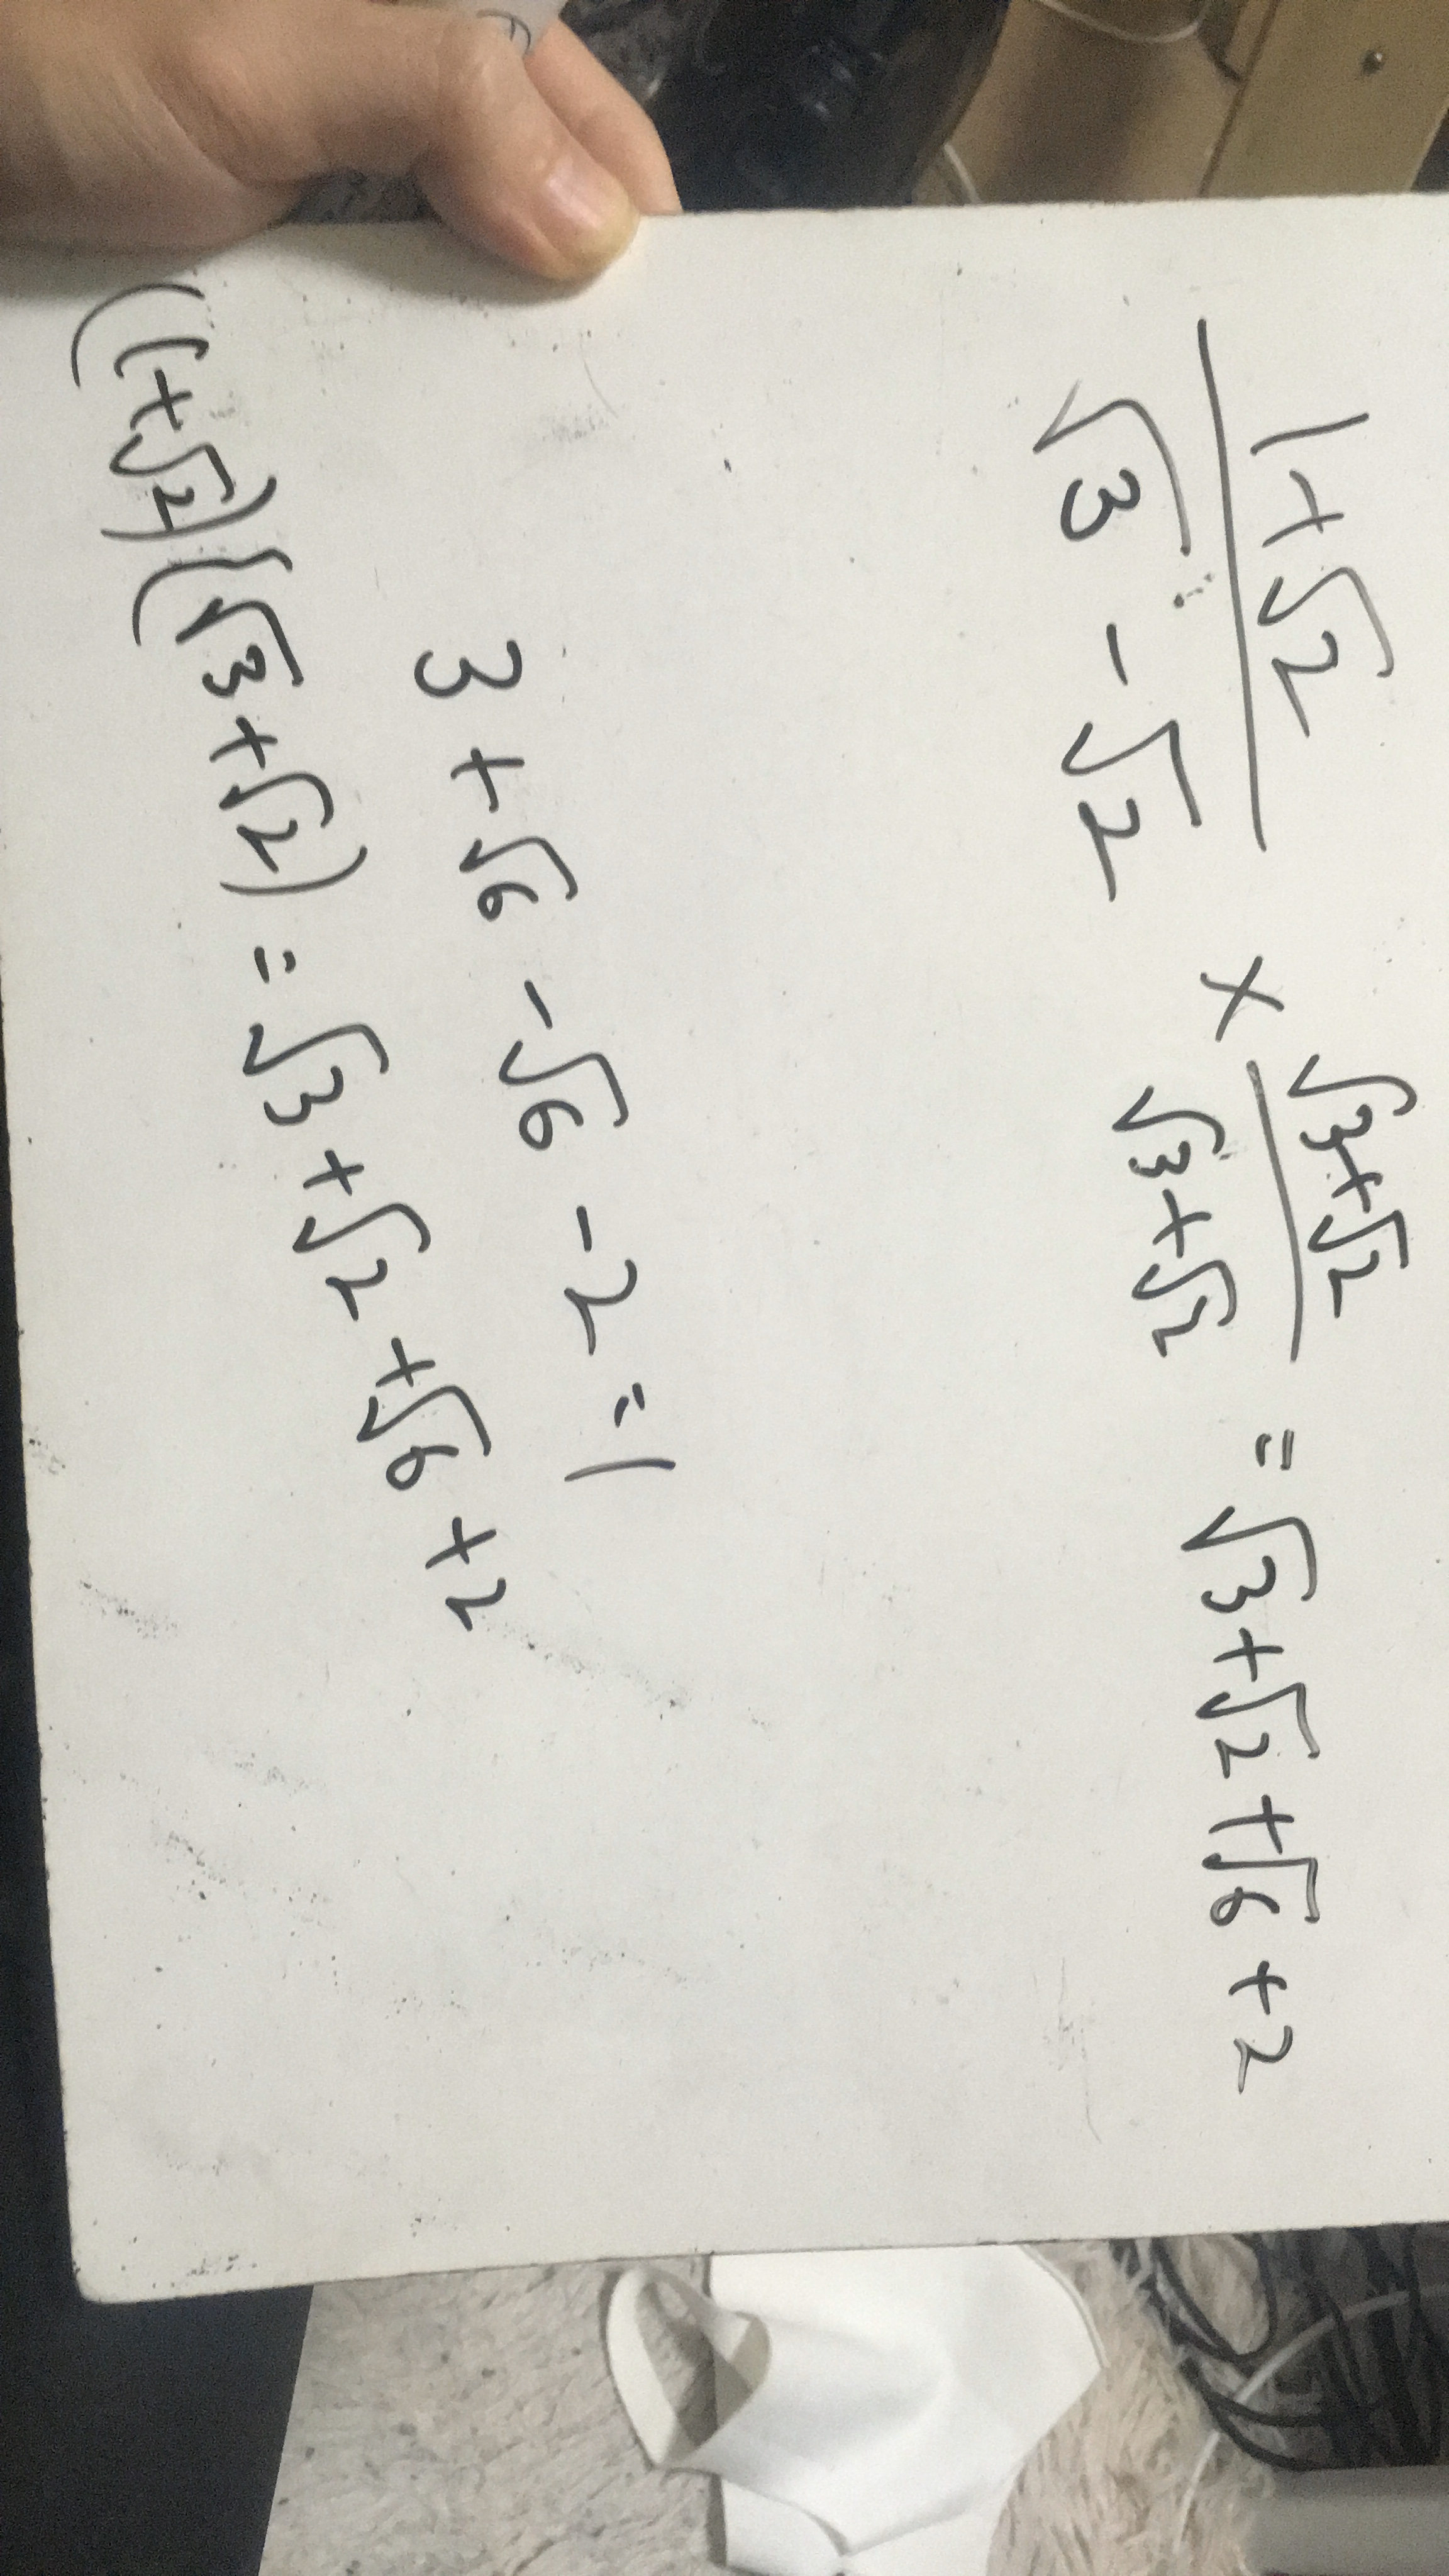 (1+√2)/(√3-√2) × (√3+√2)/(√3+√2) = √3+√2+√6+2
3+√6-√6-2=1
(1+√2)(√3+√2)=√3+√2+√6+2